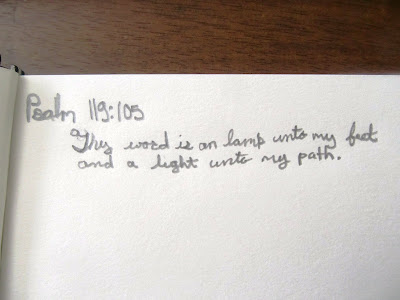 Psalm 119:105
Thy word is an lamp unto my feet
and a light unto my path.